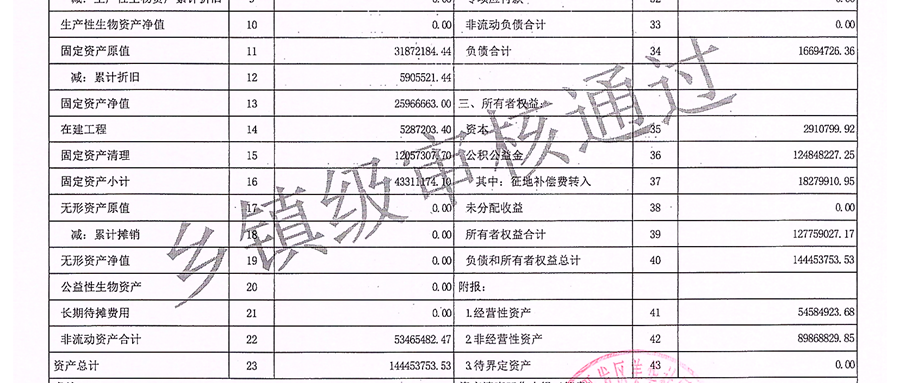 减：生产性生物资产累计折旧 9 0.00 专项应付款 32 0.00
生产性生物资产净值 10 0.00 非流动负债合计 33 0.00
固定资产原值 11 31872184.44 负债合计 34 16694726.36
减：累计折旧 12 5905521.44
固定资产净值 13 25966663.00 三、所有者权益：
在建工程 14 5287203.40 资本 35 2910799.92
固定资产清理 15 12057307.70 公积公益金 36 124848227.25
固定资产小计 16 43311174.10 其中：征地补偿费转入 37 18279910.95
无形资产原值 17 0.00 未分配收益 38 0.00
减：累计摊销 18 0.00 所有者权益合计 39 127759027.17
无形资产净值 19 0.00 负债和所有者权益总计 40 144453753.53
公益性生物资产 20 0.00 附报：
长期待摊费用 21 0.00 1.经营性资产 41 54584923.68
非流动资产合计 22 53465482.47 2.非经营性资产 42 89868829.85
资产总计 23 144453753.53 3.待界定资产 43 0.00
乡镇级审核通过